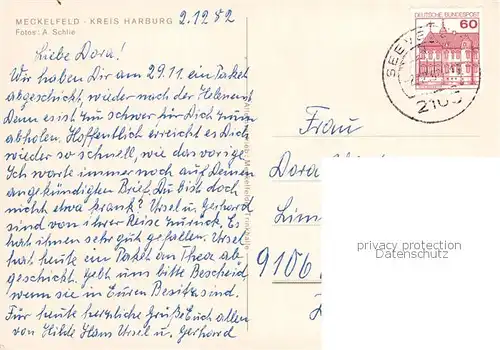 MECKELFELD - KREIS HARBURG
Fotos: A. Schlie
2.12.82
Liebe Dora!
Wir haben Dir am 29.11. ein Paket
abgeschickt, wieder nach der
Denn es ist zu schwer für Dich zum
abholen. Hoffentlich erreicht es Dich
wieder so schnell, wie das vorige.
Ich warte immer noch auf Deinen
angekündigten Brief. Du bist doch
nicht etwa krank? Ursel u. Gerhard
sind von ihrer Reise zurück. Es
hat ihnen sehr gut gefallen. Ursel
hat heute ein Paket an Thea ab
geschickt. Gebt uns bitte Bescheid,
wenn sie in Euren Besitz sind.
Für heute herzliche Grüße Euch allen
von Hilde Hans Ursel u. Gerhard
DEUTSCHE BUNDESPOST
60
SEEVE
2105
Frau
Dora
9106
privacy protection
Datenschutz